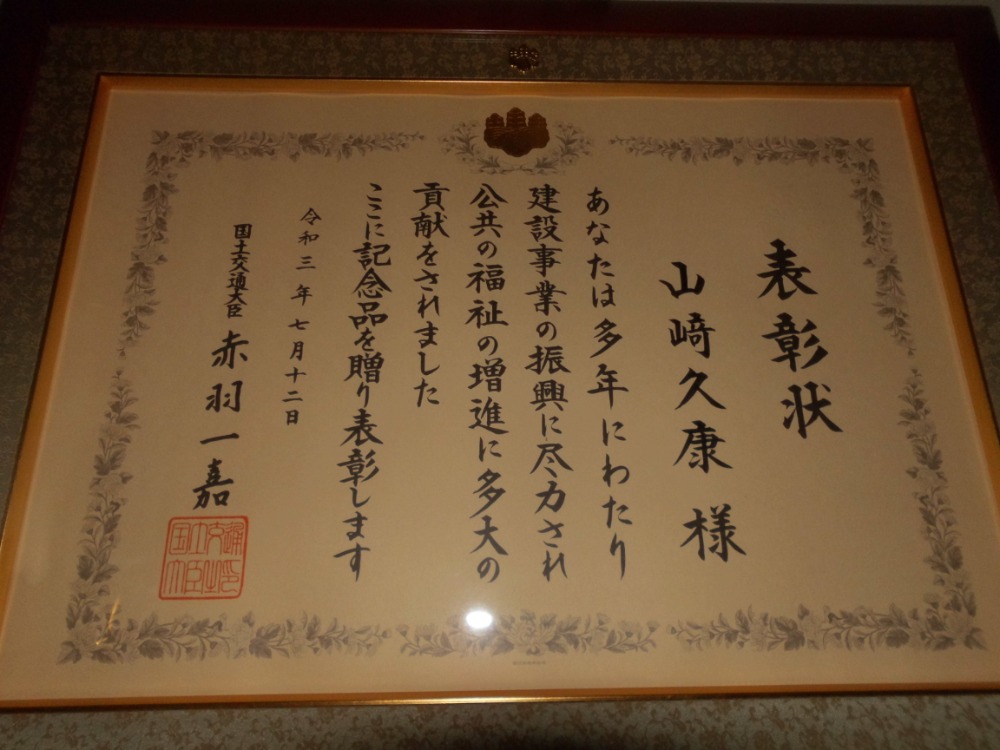 表彰状
山﨑久康 様
あなたは多年にわたり
建設事業の振興に尽力され
公共の福祉の増進に多大の
貢献をされました
ここに記念品を贈り表彰します
令和三年七月十二日
国土交通大臣 赤羽一嘉
国土交通大臣之印